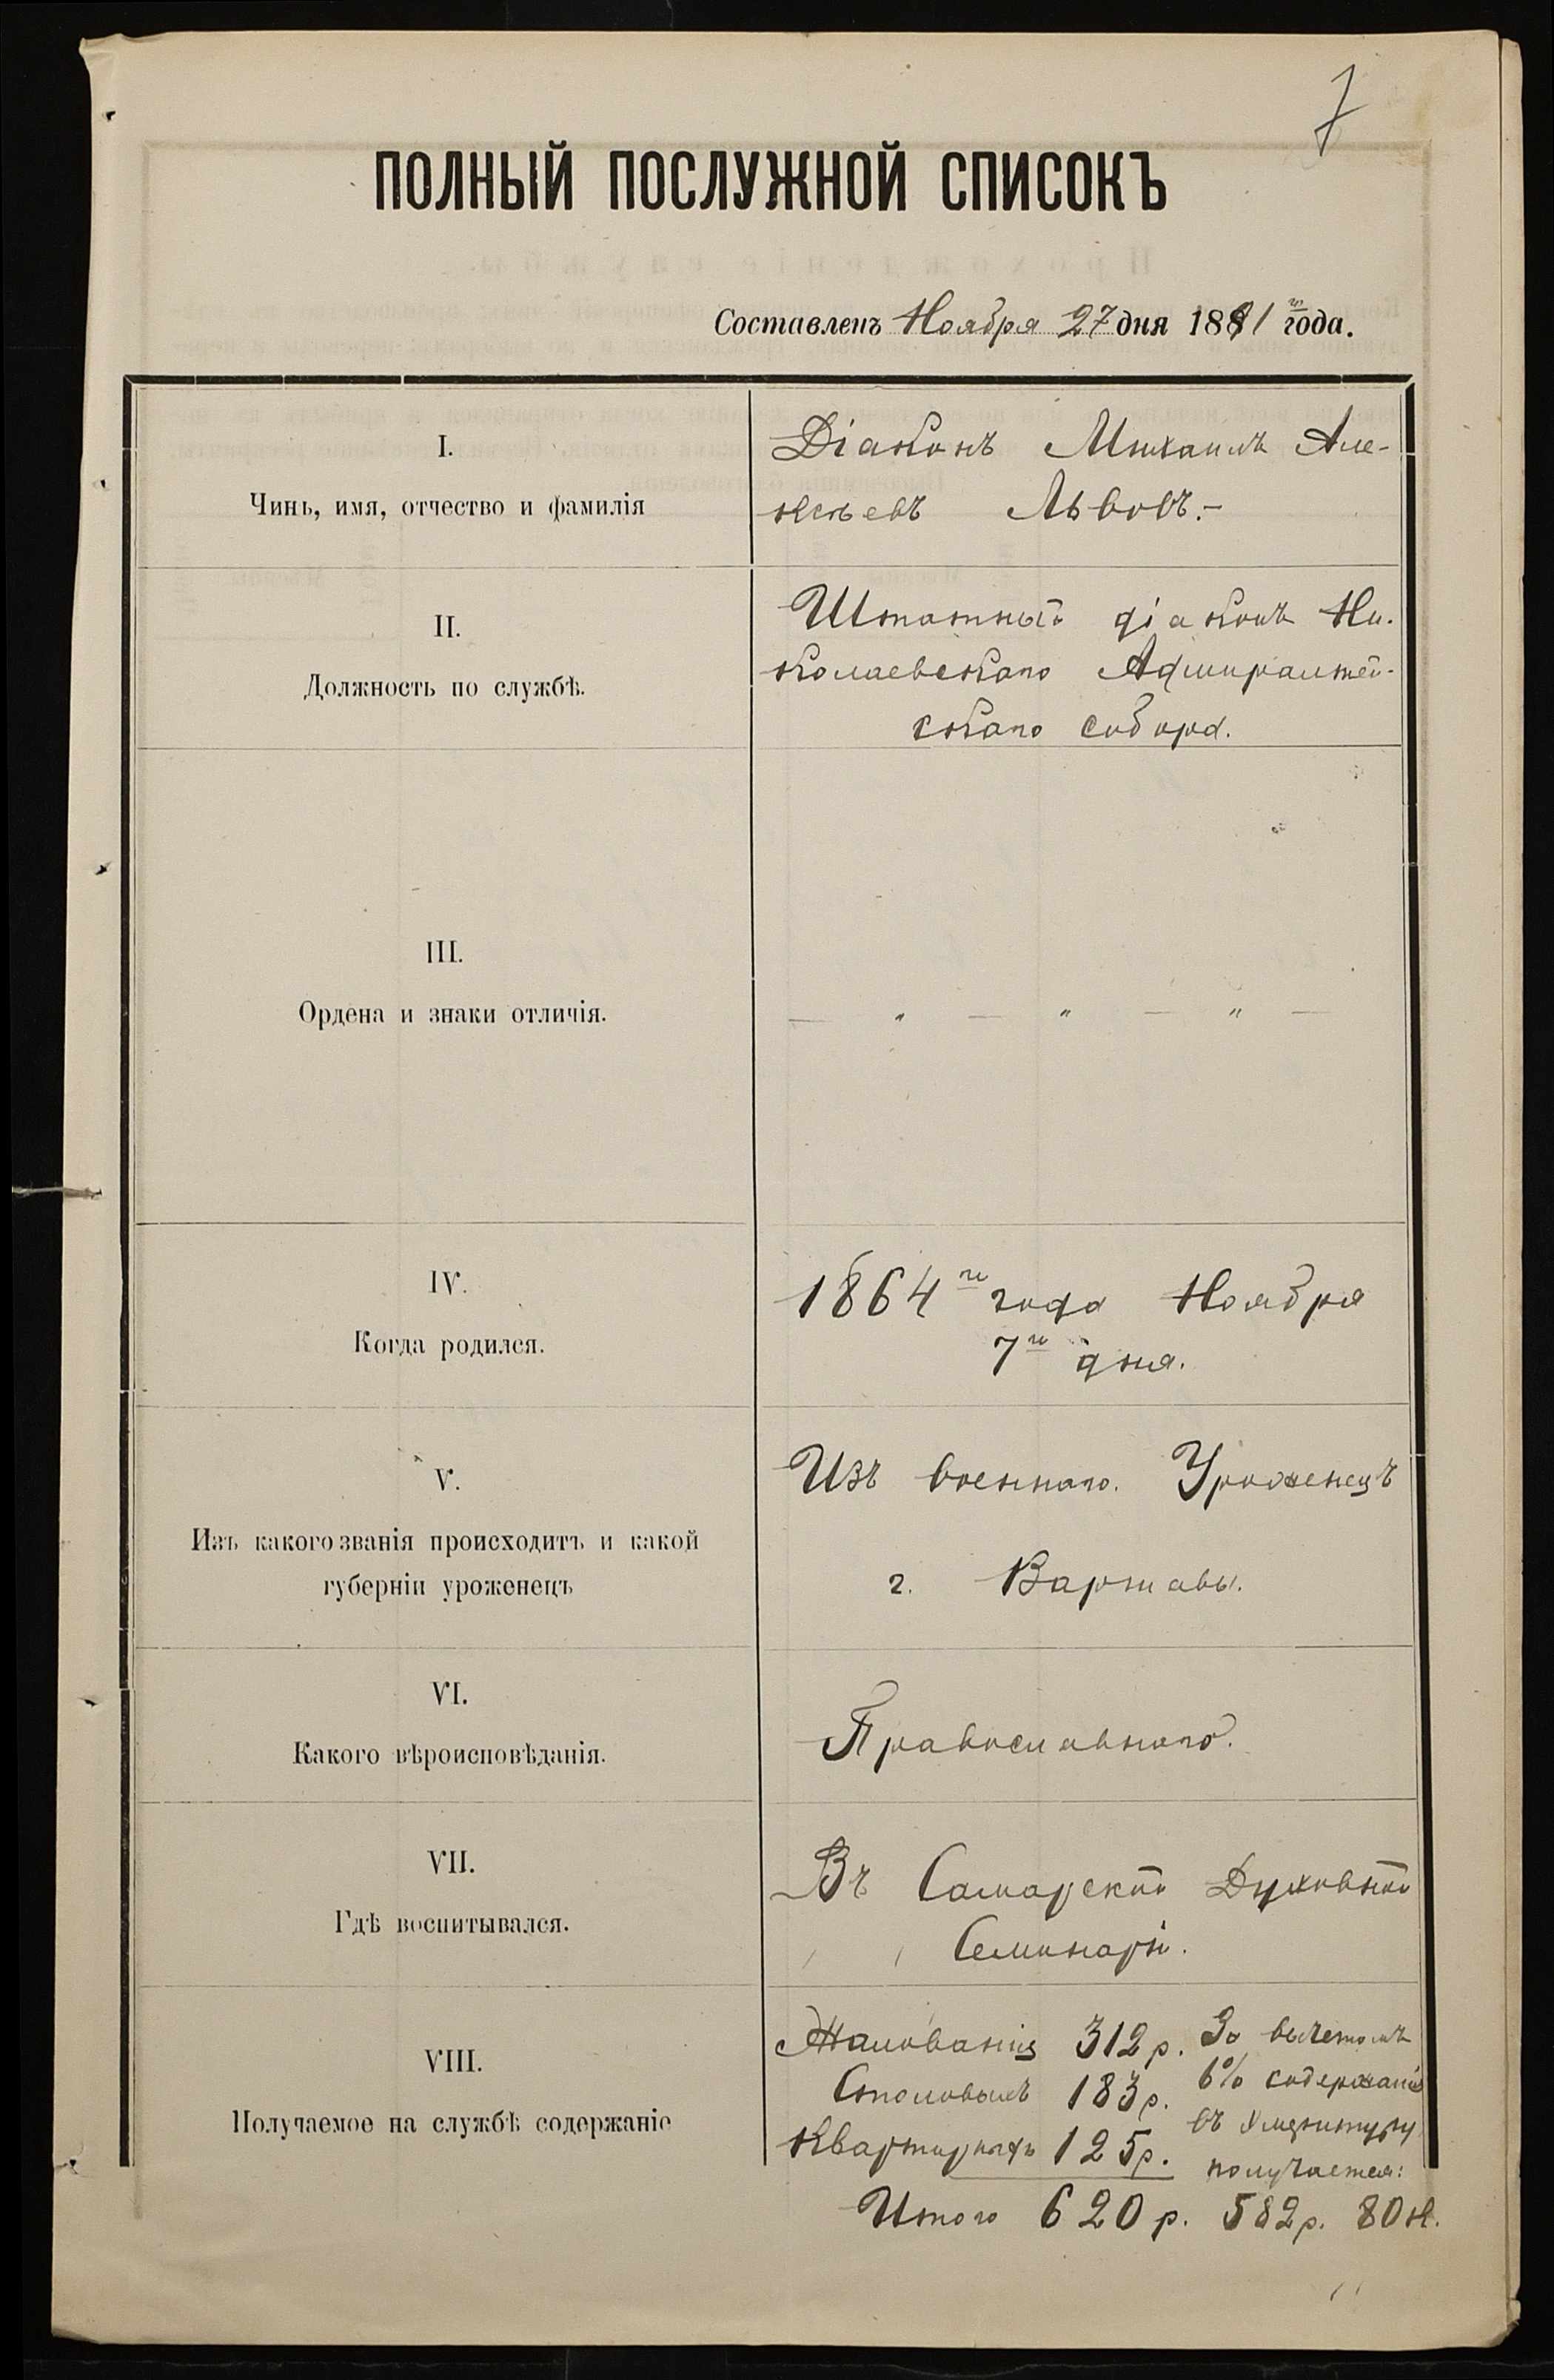 7
ПОЛНЫЙ ПОСЛУЖНОЙ СПИСОКЪ
Составленъ Ноября 27 дня 1891 го года.
I.
Чинъ, имя, отчество и фамилія
Діаконъ Михаилъ Але-
ксѣевъ Львовъ.-
II.
Должность по службѣ.
Штатный діаконъ Ни-
колаевскаго Адмиралтей-
скаго собора.
III.
Ордена и знаки отличія.
— „ — „ — „ —
IV.
Когда родился.
1864 го года Ноября
7 го дня.
V.
Изъ какого званія происходитъ и какой
губерніи уроженецъ
Изъ военнаго. Уроженецъ
г. Варшавы.
VI.
Какого вѣроисповѣданія.
Православнаго.
VII.
Гдѣ воспитывался.
Въ Самарской Духовной
Семинаріи.
VIII.
Получаемое на службѣ содержаніе
Жалованія 312 р.
Столовыхъ 183 р.
Квартирныхъ 125 р.
Итого 620 р.
За вычетомъ
6% содержанія
въ эмеритуру
получается:
582 р. 80 к.